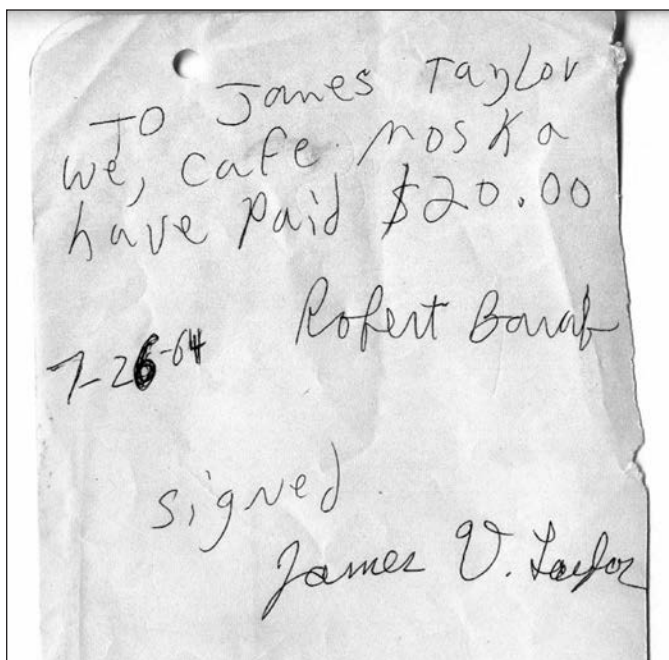 TO James Taylor
we, cafe moska
have paid $20.00
Robert
7-26-64
signed
James V. Taylor